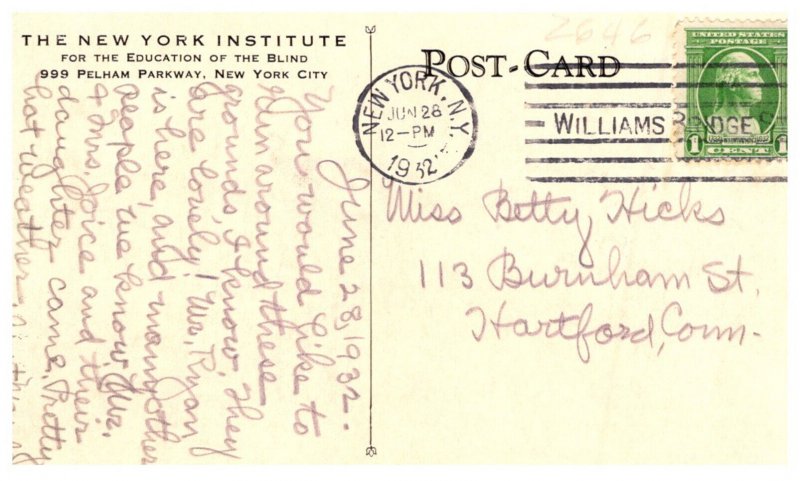 THE NEW YORK INSTITUTE
FOR THE EDUCATION OF THE BLIND
999 PELHAM PARKWAY, NEW YORK CITY
June 28, 1932.
You would like to
run around these
grounds. I know they
are lovely! Mr. Ryan
is here, and many other
people we know. Mr.
& Mrs. Joice and their
daughter came. Pretty
hot weather
2646
POST-CARD
UNITED STATES
POSTAGE
1 CENT 1
NEW YORK, N.Y.
JUN 28
12-PM
1932
WILLIAMSBRIDGE
Miss Betty Hicks
113 Burnham St.
Hartford, Conn-